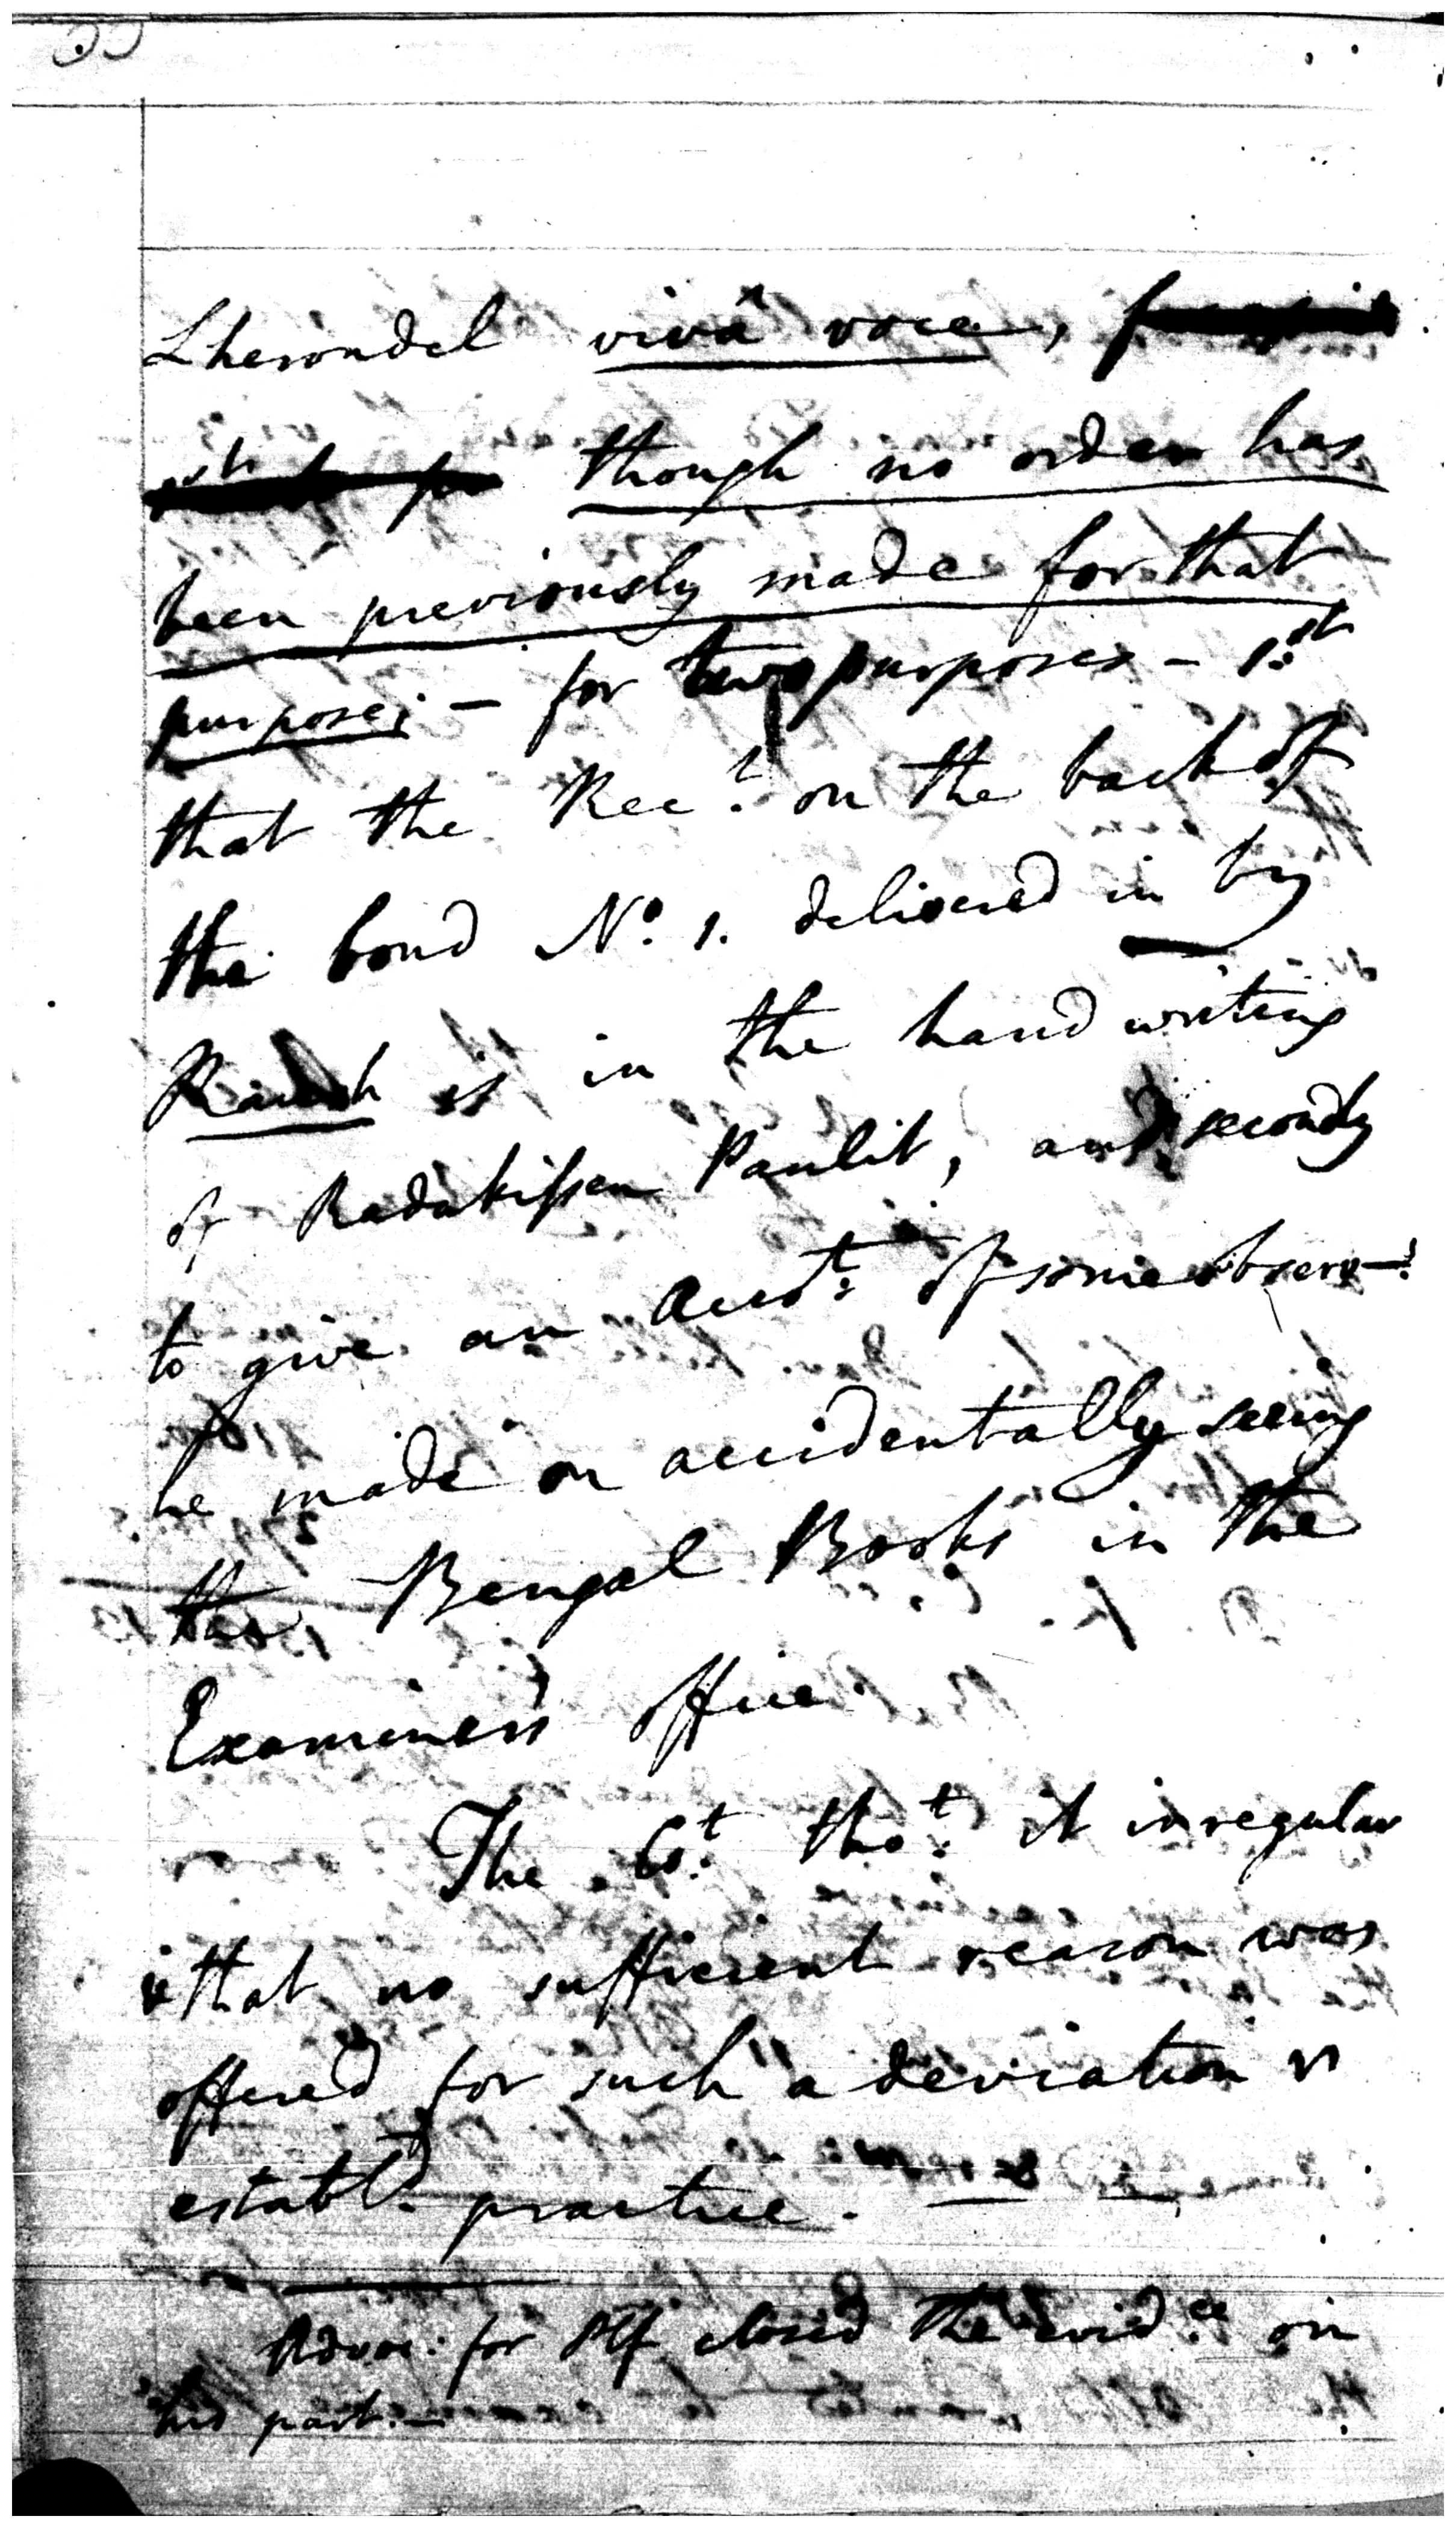 Lherondel vivâ voce,
though no order has
been previously made for that
purpose; – for two purposes – 1st
that the Rect. on the back of
the bond No. 1. delivered in by
is in the hand writing
of Radakissen Paulit, and secondly
to give an Accot. of some observ
he made on accidentally seeing
the Bengal Books in the
Examiners office.
The Ct. thot. it irregular
& that no sufficient reason was
offered for such a deviation
establd. practice.
Advoc: for Plf closed the evidce. on
his part. –